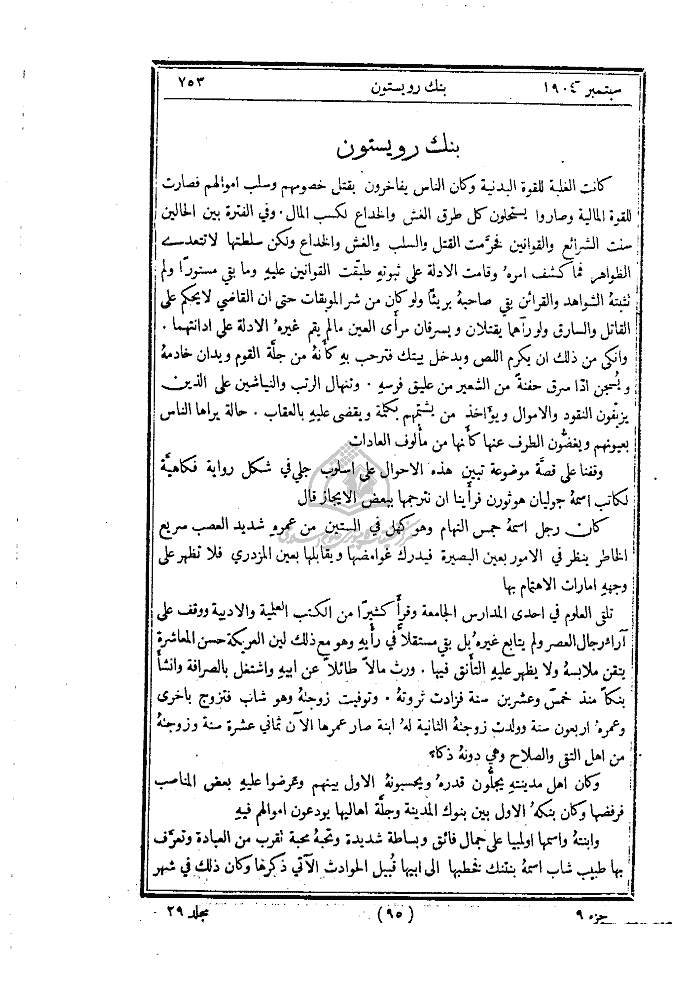 سبتمبر ١٩٠٤ بنك رويستون ٧٥٣
بنك رويستون
كانت الغلبة للقوة البدنية وكان الناس يفاخرون بقتل خصومهم وسلب اموالهم فصارت
للقوة المالية وصاروا يستحلون كل طرق الغش والخداع لكسب المال . وفي الفترة بين الحالين
سنت الشرائع والقوانين فحرَّمت القتل والسلب والغش والخداع ولكن سلطتها لا تتعدى
الظواهر فما كشف امرهُ وقامت الادلة على ثبوتهِ طبقت القوانين عليهِ وما بقي مستورًا ولم
تثبتهُ الشواهد والقرائن بقي صاحبهُ بريئًا ولو كان من شر الموبقات حتى ان القاضي لا يحكم على
القاتل والسارق ولو رآهما يقتلان ويسرقان مرأى العين مالم يقم غيرهُ الادلة على ادانتهما .
وانكى من ذلك ان يكرم اللص ويدخل بيتك فترحب بهِ كأنهُ من جلَّة القوم ويدان خادمهُ
ويُسجن اذا سرق حفنةً من الشعير من عليق فرسهِ . وتنهال الرتب والنياشين على الذين
يزيّفون النقود والاموال ويؤاخذ من يشتمهم بكلمة ويقضى عليهِ بالعقاب . حالة يراها الناس
بعيونهم ويغضُّون الطرف عنها كأنها من مألوف العادات
وقفنا على قصَّة موضوعة تبين هذه الاحوال على اسلوب جلي في شكل رواية فكاهيَّة
لكاتب اسمهُ جوليان هوثورن فرأينا ان نترجمها ببعض الايجاز قال
كان رجل اسمهُ جمس النهام وهو كهل في الستين من عمرهِ شديد العصب سريع
الخاطر ينظر في الامور بعين البصيرة فيدرك غوامضها ويقابلها بعين المزدري فلا تظهر على
وجههِ امارات الاهتمام بها
تلقى العلوم في احدى المدارس الجامعة وقرأ كثيرًا من الكتب العلمية والادبية ووقف على
آراء رجال العصر ولم يتابع غيرهُ بل بقي مستقلاًّ في رأيهِ وهو مع ذلك لين العريكة حسن المعاشرة
يتقن ملابسهُ ولا يظهر عليهِ التأنق فيها . ورث مالاً طائلاً عن ابيهِ واشتغل بالصرافة وانشأ
بنكًا منذ خمس وعشرين سنة فزادت ثروتهُ . وتوفيت زوجتهُ وهو شاب فتزوج باخرى
وعمرهُ اربعون سنة وولدت زوجتهُ الثانية لهُ ابنة صار عمرها الآن ثماني عشرة سنة وزوجتهُ
من اهل التقى والصلاح وهي دونهُ ذكاءً
وكان اهل مدينتهِ يجلُّون قدرهُ ويحسبونهُ الاول بينهم وعرضوا عليهِ بعض المناصب
فرفضها وكان بنكهُ الاول بين بنوك المدينة وجلَّة اهاليها يودعون اموالهم فيهِ
وابنتهُ واسمها اولمبيا على جمال فائق وبساطة شديدة وتحبهُ محبة تقرب من العبادة وتعرَّف
بها طبيب شاب اسمهُ بنتنك فخطبها الى ابيها قُبيل الحوادث الآتي ذكرها وكان ذلك في شهر
جزء ٩ (٩٥) مجلد ٢٩